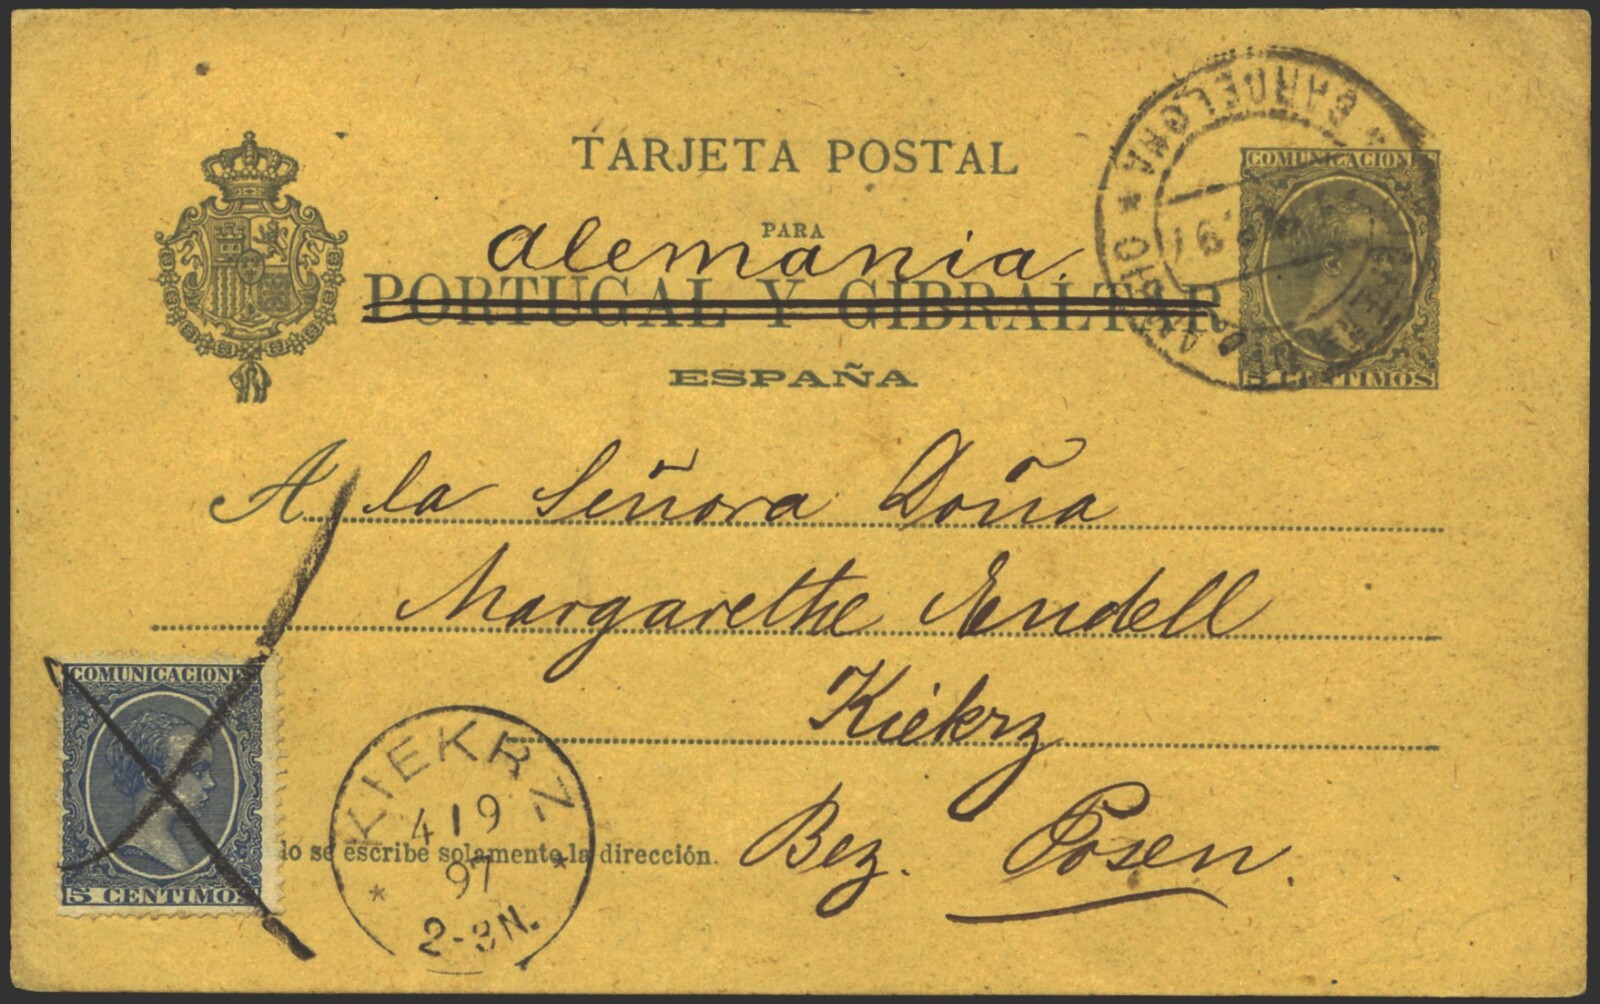 TARJETA POSTAL
PARA
Alemania.
PORTUGAL Y GIBRALTAR
ESPAÑA
COMUNICACIONES
5 CENTIMOS
A la Señora Doña
Margarethe Endell
Kiekrz
Bez. Posen.
COMUNICACIONES
5 CENTIMOS
lo se escribe solamente la dirección.
KIEKRZ
4 19
97
2-3N.